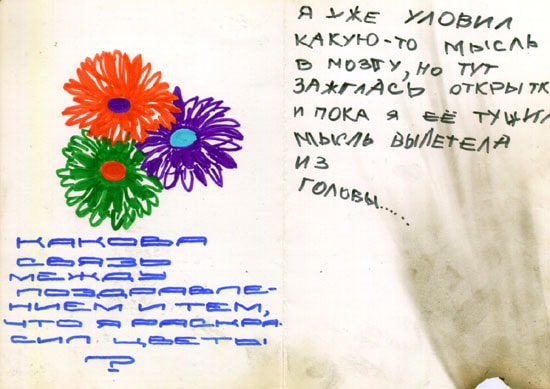 КАКОВА
СВЯЗЬ
МЕЖДУ
ПОЗДРАВЛЕ-
НИЕМ И ТЕМ,
ЧТО Я РАСКРА-
СИЛ ЦВЕТЫ
?
Я УЖЕ УЛОВИЛ
КАКУЮ-ТО МЫСЛЬ
В МОЗГУ, НО ТУТ
ЗАЖГЛАСЬ ОТКРЫТК
И ПОКА Я ЕЁ ТУШИЛ
МЫСЛЬ ВЫЛЕТЕЛА
ИЗ
ГОЛОВЫ......